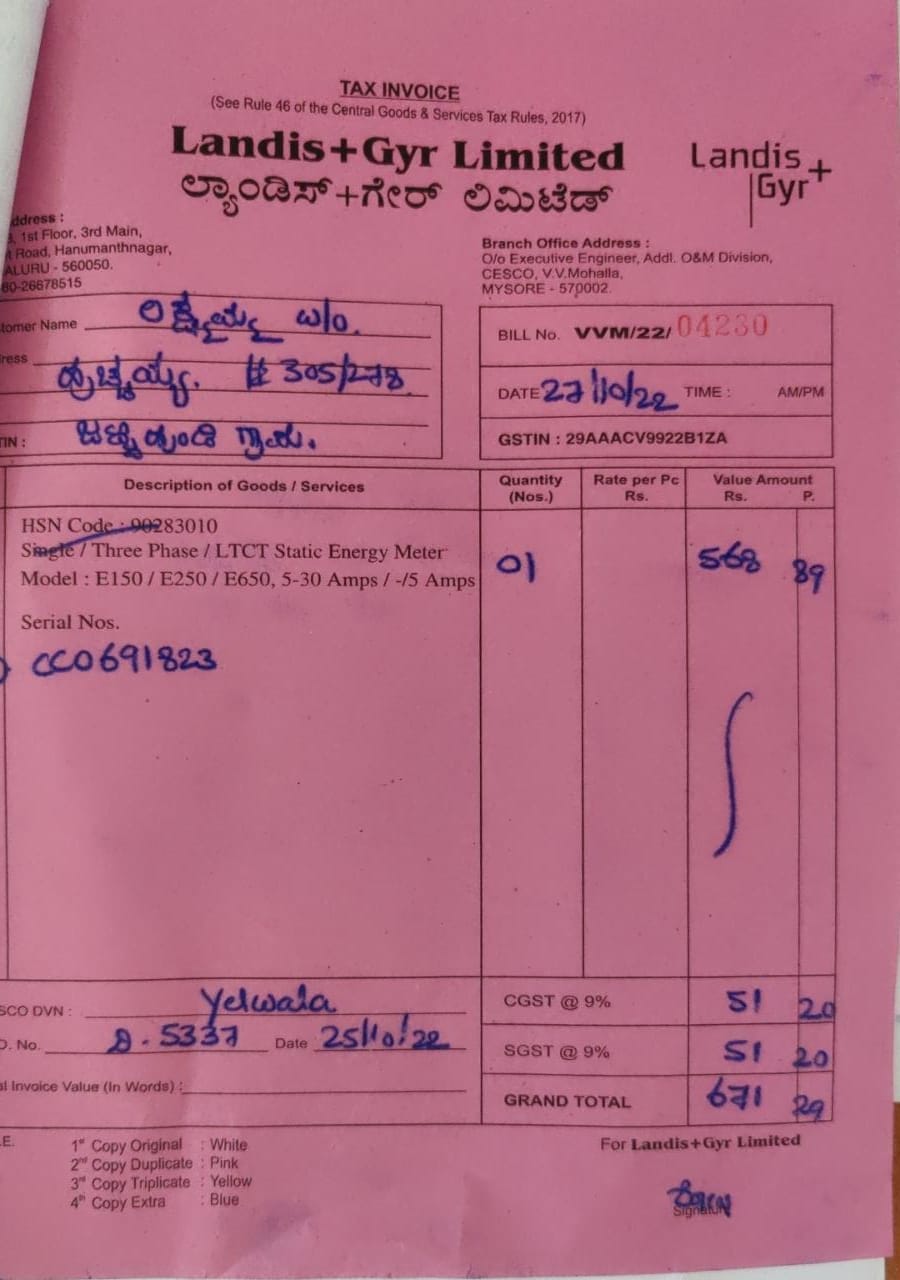 TAX INVOICE
(See Rule 46 of the Central Goods & Services Tax Rules, 2017)
Landis+Gyr Limited
ಲ್ಯಾಂಡಿಸ್+ಗೇರ್ ಲಿಮಿಟೆಡ್
Landis
Gyr+
ddress :
1st Floor, 3rd Main,
Road, Hanumanthnagar,
ALURU - 560050.
80-26678515
Branch Office Address :
O/o Executive Engineer, Addl. O&M Division,
CESCO, V.V.Mohalla,
MYSORE - 570002.
tomer Name
ress # 305/278
TIN : ಗ್ರಾಮ.
BILL No. VVM/22/04230
DATE 27/10/22 TIME : AM/PM
GSTIN : 29AAACV9922B1ZA
Description of Goods / Services
Quantity (Nos.)
Rate per Pc Rs.
Value Amount Rs. P.
HSN Code : 90283010
Single / Three Phase / LTCT Static Energy Meter
Model : E150 / E250 / E650, 5-30 Amps / -/5 Amps
01 568 89
Serial Nos.
CC0691823
SCO DVN : Yelwala
CGST @ 9% 51 20
O. No. D. 5337 Date 25/10/22
SGST @ 9% 51 20
al Invoice Value (In Words) :
GRAND TOTAL 671 29
E.
1st Copy Original : White
2nd Copy Duplicate : Pink
3rd Copy Triplicate : Yellow
4th Copy Extra : Blue
For Landis+Gyr Limited
Signature